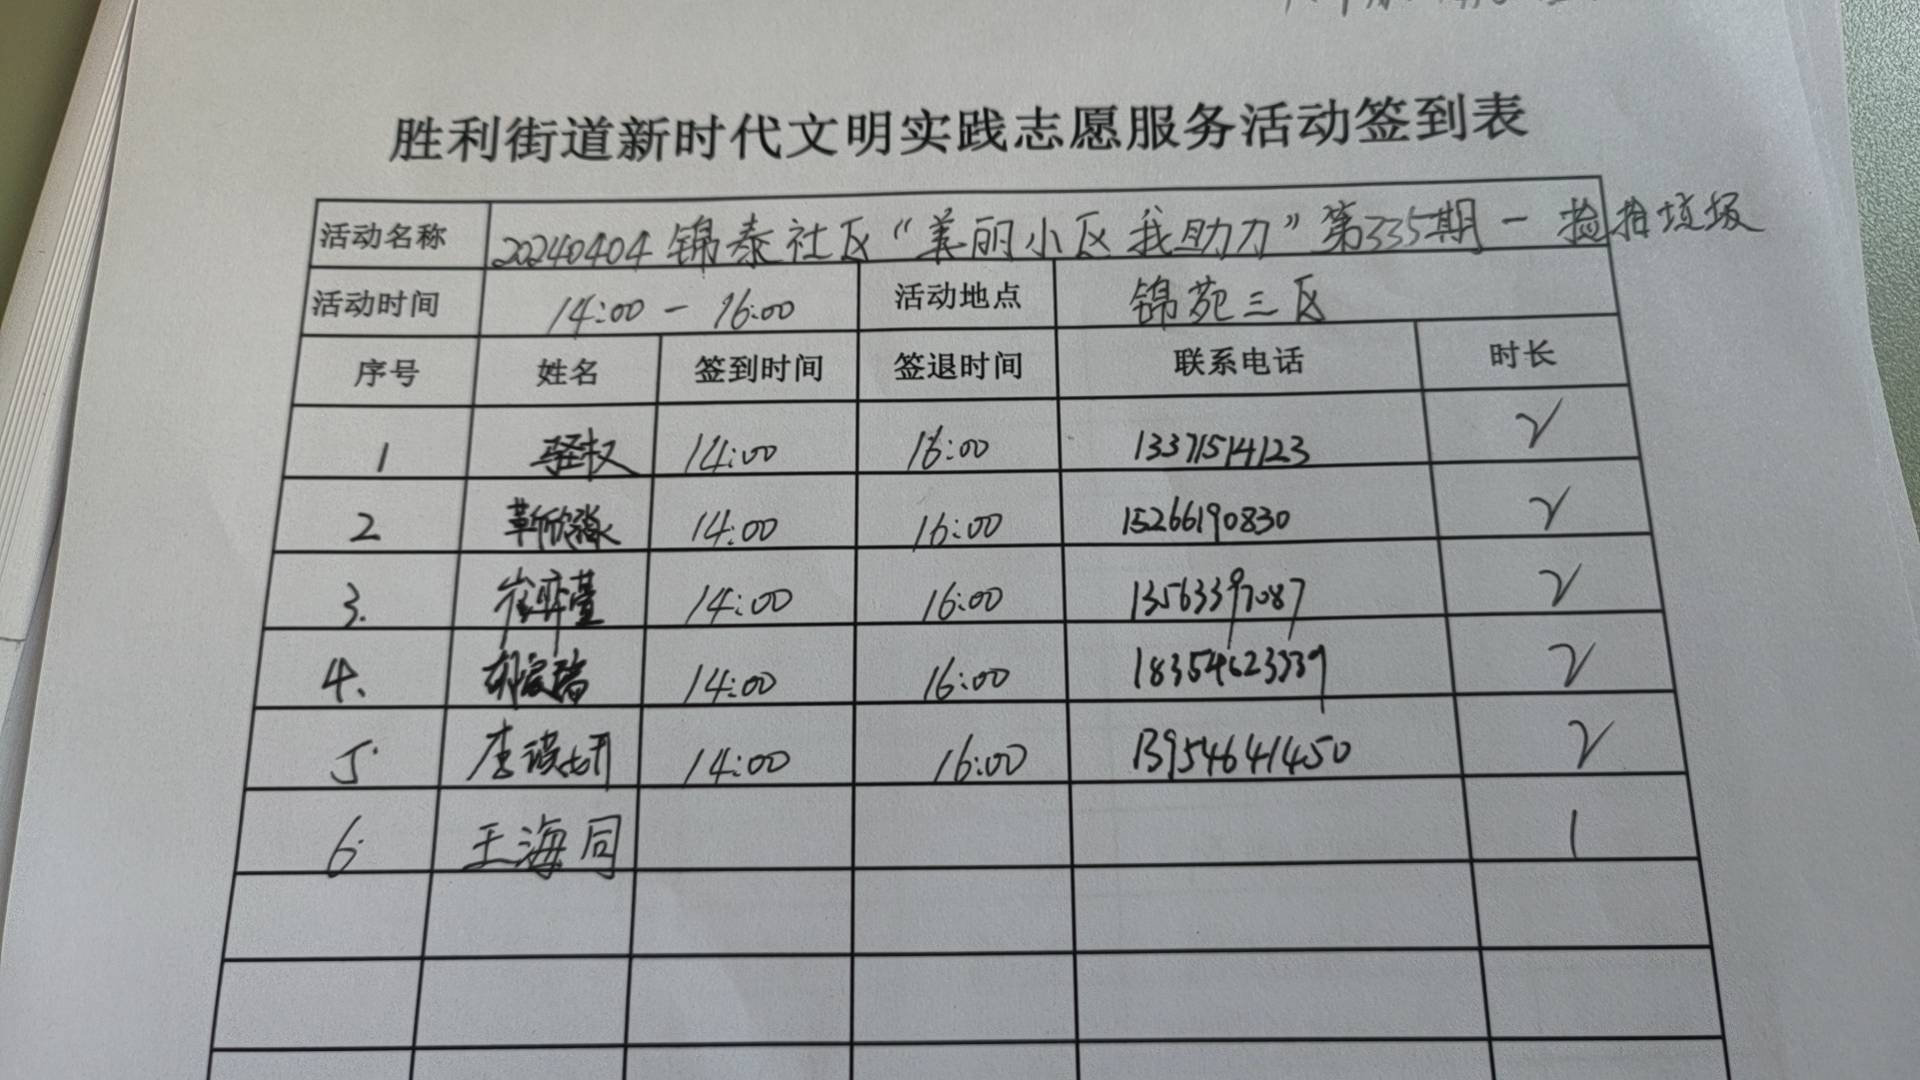 胜利街道新时代文明实践志愿服务活动签到表
活动名称 20240404 锦泰社区“美丽小区 我助力”第335期 - 捡拾垃圾
活动时间 14:00 - 16:00 活动地点 锦苑三区
序号 姓名 签到时间 签退时间 联系电话 时长
1 14:00 16:00 13371514123 2
2 靳欣淼 14:00 16:00 15266190830 2
3. 14:00 16:00 13563397087 2
4. 14:00 16:00 2
5. 李 14:00 16:00 13954641450 2
6. 王海同 1